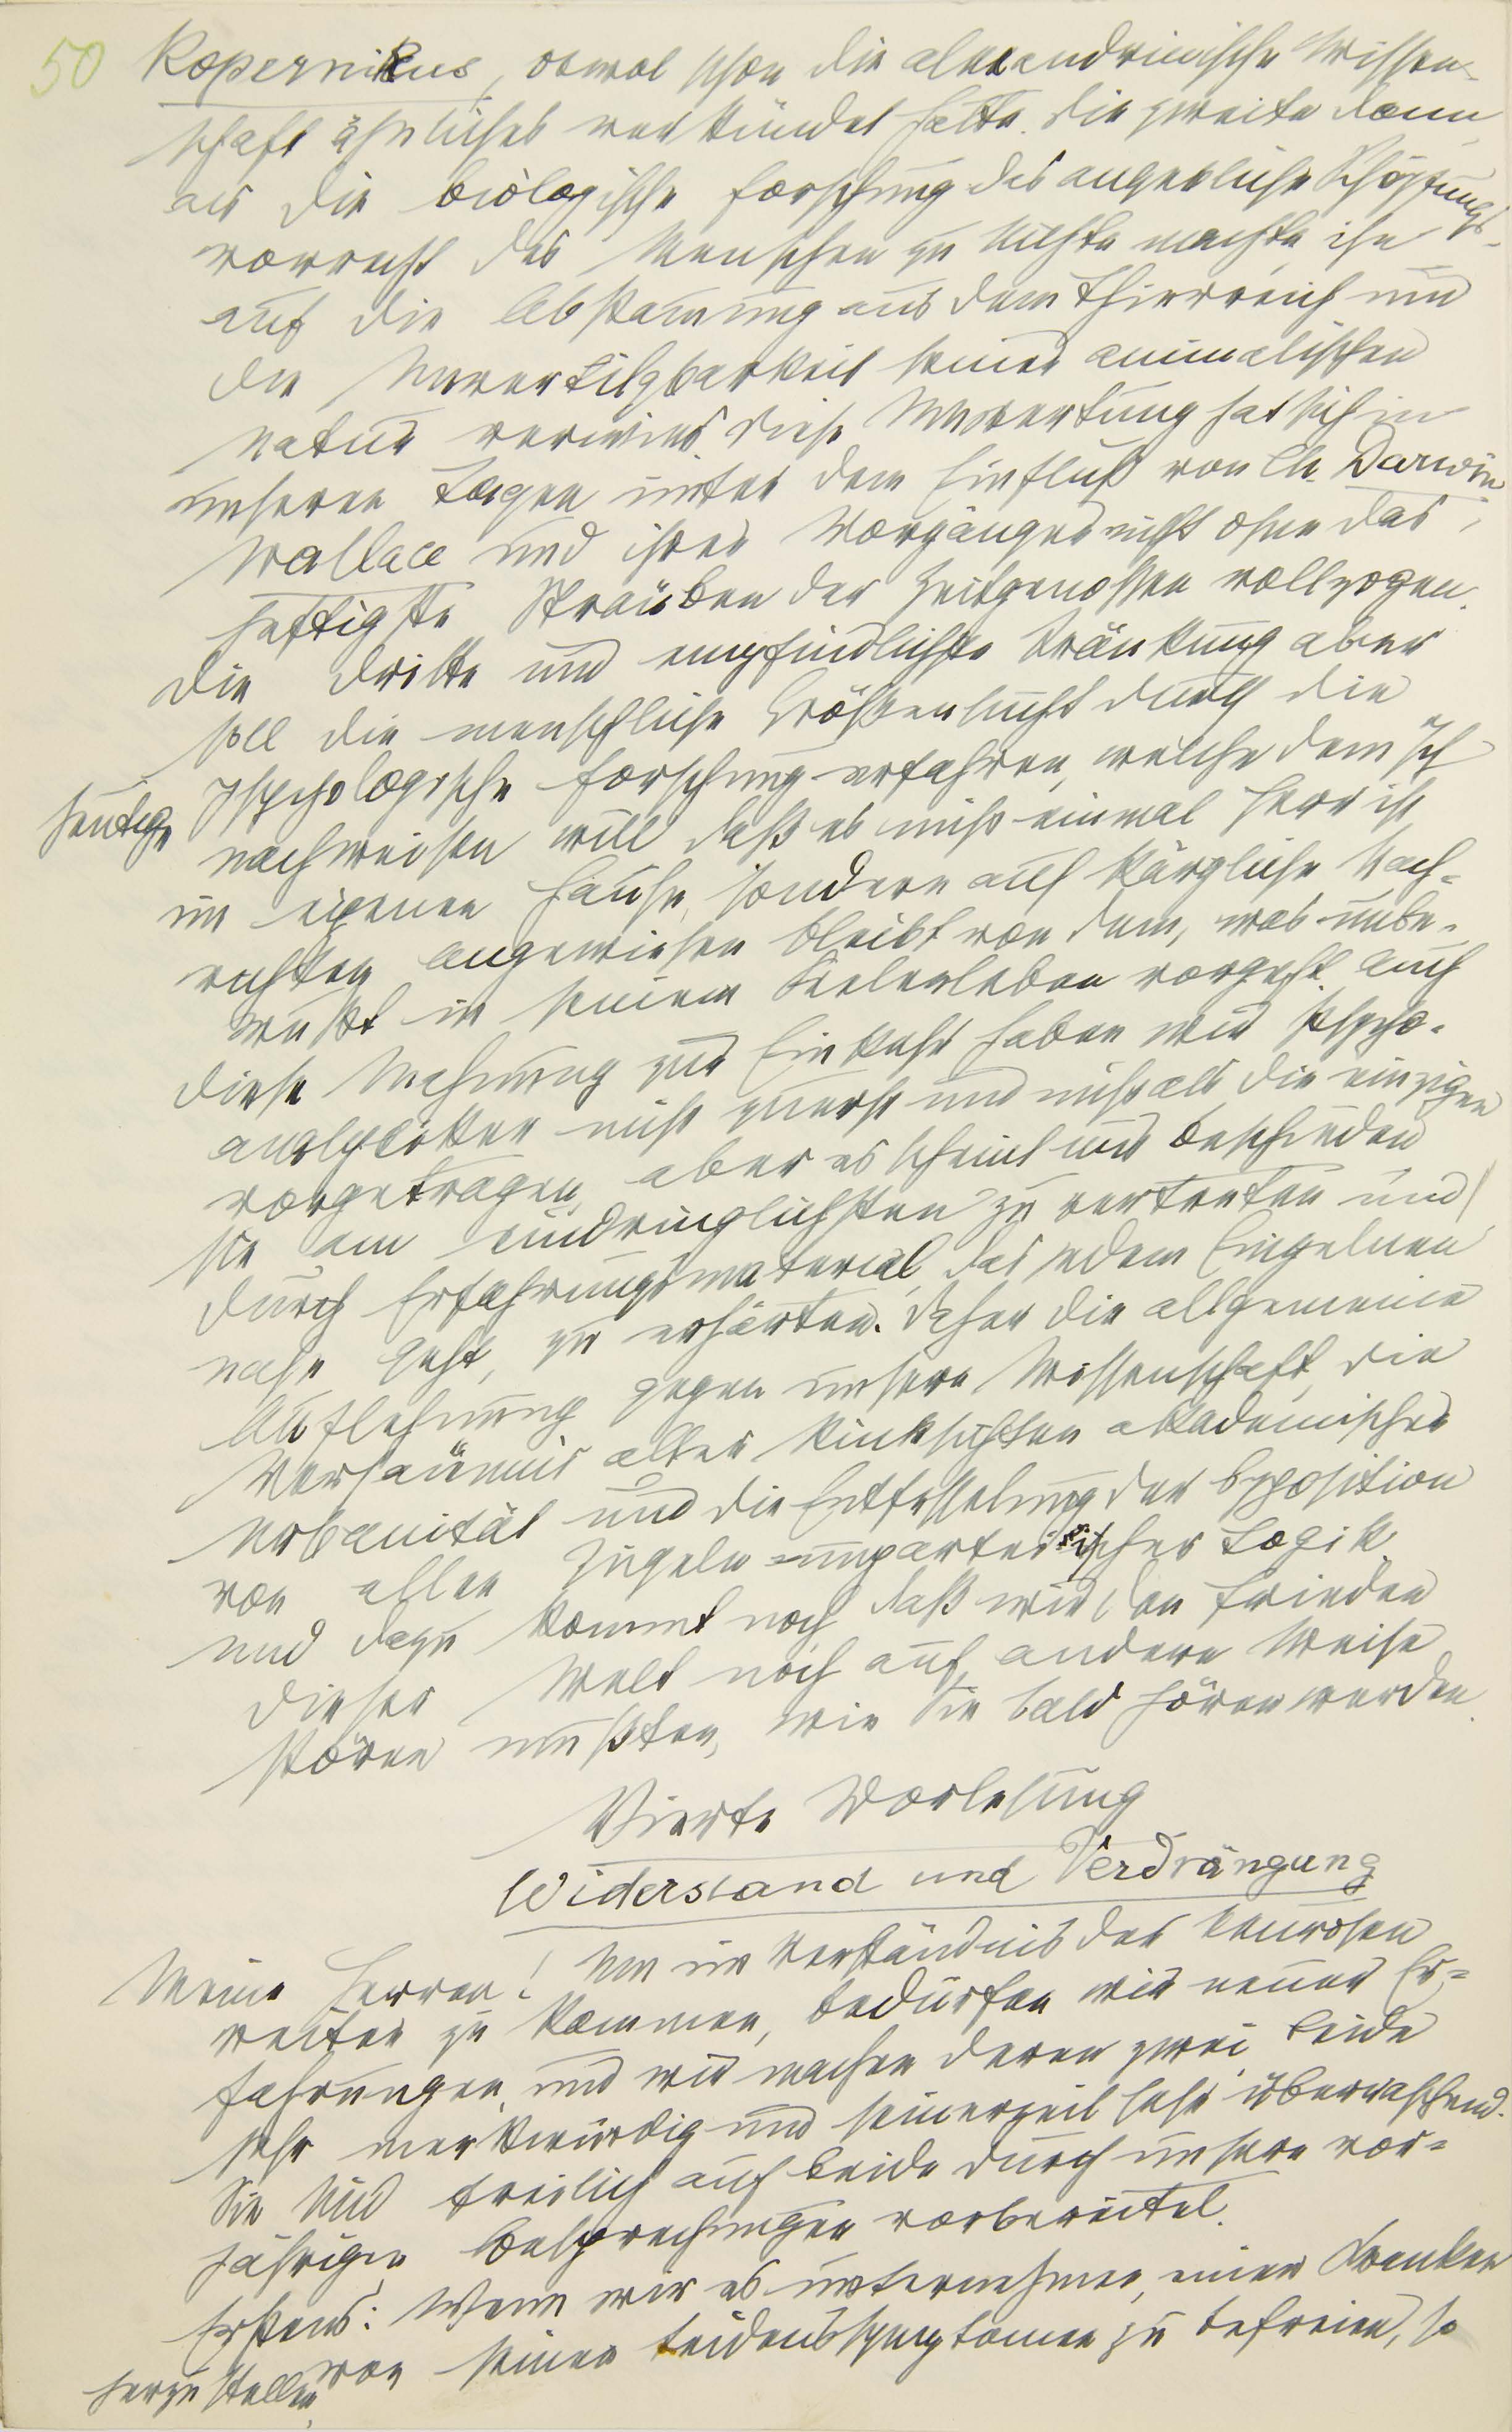 50
Kopernikus, obwol schon die alexandrinische Wissen-
schaft ähnliches verkündet hatte. Die zweite dann
als die biologische Forschung das angebliche Schöpfungs-
vorrecht des Menschen zu nichte machte, ihn
auf die Abstammung aus dem Thierreich und
die Unvertilgbarkeit seiner animalischen
Natur verwies. Diese Umwertung hat sich in
unseren Tagen unter dem Einfluß von Ch. Darwin,
Wallace und ihrer Vorgänger nicht ohne das
heftigste Sträuben der Zeitgenossen vollzogen.
Die dritte und empfindlichste Kränkung aber
soll die menschliche Größensucht durch die
heutige psychologische Forschung erfahren, welche dem Ich
nachweisen will, daß es nicht einmal Herr ist
im eigenen Hause, sondern auf kärgliche Nach-
richten angewiesen bleibt von dem, was unbe-
wußt in seinem Seelenleben vorgeht. Auch
diese Mahnung zur Einkehr haben wir Psycho-
analytiker nicht zuerst und nicht als die einzigen
vorgetragen, aber es scheint uns beschieden
sie am eindringlichsten zu vertreten und
durch Erfahrungsmaterial, das jedem Einzelnen
nahe geht, zu erhärten. Daher die allgemeine
Auflehnung gegen unsere Wissenschaft, die
Versäumnis aller Rücksichten akademischer
Urbanität und die Entfesselung der Opposition
von allen Zügeln unparteiischer Logik
und dazu kommt noch daß wir den Frieden
dieser Welt noch auf andere Weise
stören mußten, wie Sie bald hören werden.
Vierte Vorlesung
Widerstand und Verdrängung
Meine Herren! Um im Verständnis der Neurosen
weiter zu kommen, bedürfen wir neuer Er-
fahrungen, und wir machen deren zwei. Beide
sehr merkwürdig und seinerzeit sehr überraschend.
Sie sind freilich auf beide durch unsere vor-
jährigen Besprechungen vorbereitet.
Erstens: Wenn wir es unternehmen, einen Kranken
herzustellen, von seinen Leidenssymptomen zu befreien, so